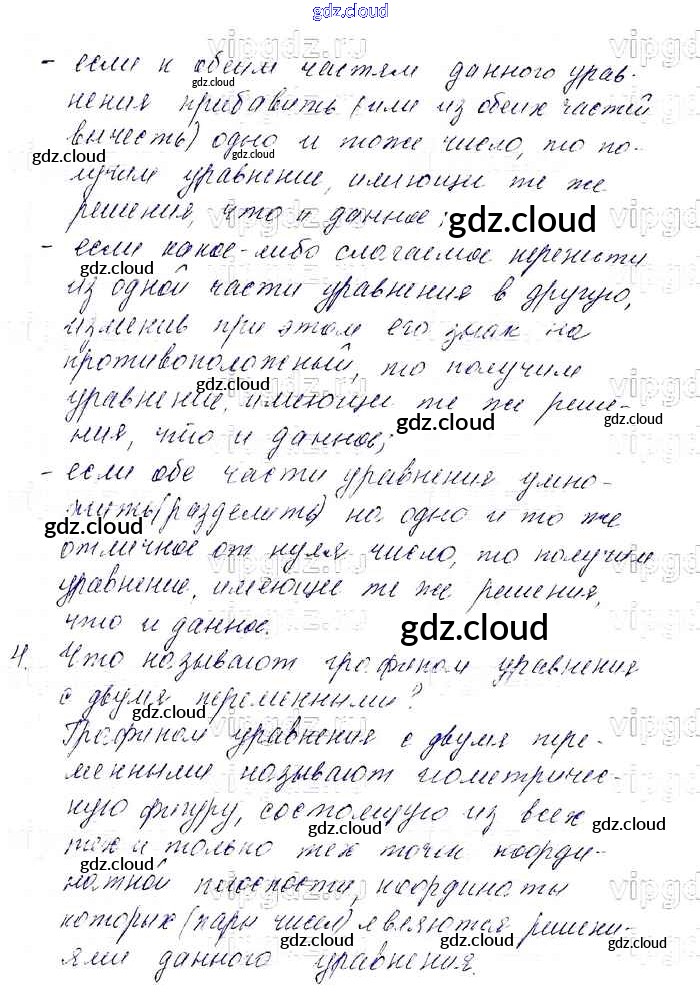 gdz.cloud
- если к обеим частям данного урав-
нения прибавить (или из обеих частей
вычесть) одно и тоже число, то по-
лучим уравнение, имеющи те же
решения, что и данное;
- если какое-либо слагаемое перенести
из одной части уравнения в другую,
изменив при этом его знак на
противоположный, то получим
уравнение, имеющи те же реше-
ния, что и данное;
- если обе части уравнения умно-
жить (разделить) на одно и то же
отличное от нуля число, то получим
уравнение, имеющее те же решения,
что и данное.
4. Что называют графиком уравнения
с двумя переменными?
Графиком уравнения с двумя пере-
менными называют геометричес-
кую фигуру, состоящую из всех
тех и только тех точек коорди-
натной плоскости, координаты
которых (пары чисел) являются решени-
ями данного уравнения.